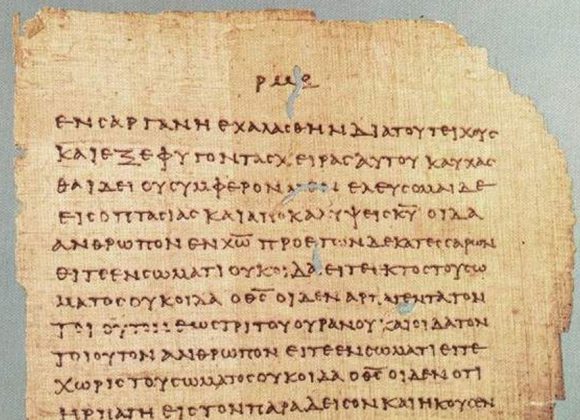 ρμε
ΕΝϹΑΡΓΑΝΗΕΧΑΛΑϹΘΗΝΔΙΑΤΟΥΤΕΙΧΟΥϹ
ΚΑΙΕΞΕΦΥΓΟΝΤΑϹΧΕΙΡΑϹΑΥΤΟΥΚΑΥΧΑϹ
ΘΑΙΔΕΙΟΥϹΥΜΦΕΡΟΝΜΕΝΕΛΕΥϹΟΜΑΙΔΕ
ΕΙϹΟΠΤΑϹΙΑϹΚΑΙΑΠΟΚΑΛΥΨΕΙϹΚ̅Υ̅ΟΙΔΑ
ΑΝΘΡΩΠΟΝΕΝΧ̅Ω̅ΠΡΟΕΤΩΝΔΕΚΑΤΕϹϹΑΡΩΝ
ΕΙΤΕΕΝϹΩΜΑΤΙΟΥΚΟΙΔΑΕΙΤΕΕΚΤΟϹΤΟΥϹΩ
ΜΑΤΟϹΟΥΚΟΙΔΑΟΘ̅Ϲ̅ΟΙΔΕΝΑΡΠΑΓΕΝΤΑΤΟΝ
ΤΟΙΟΥΤΟΝΕΩϹΤΡΙΤΟΥΟΥΡΑΝΟΥΚΑΙΟΙΔΑΤΟΝ
ΤΟΙΟΥΤΟΝΑΝΘΡΩΠΟΝΕΙΤΕΕΝϹΩΜΑΤΙΕΙΤΕ
ΧΩΡΙϹΤΟΥϹΩΜΑΤΟϹΟΥΚΟΙΔΑΟΘ̅Ϲ̅ΟΙΔΕΝΟΤΙ
ΗΡΠΑΓΗΕΙϹΤΟΝΠΑΡΑΔΕΙϹΟΝΚΑΙΗΚΟΥϹΕΝ